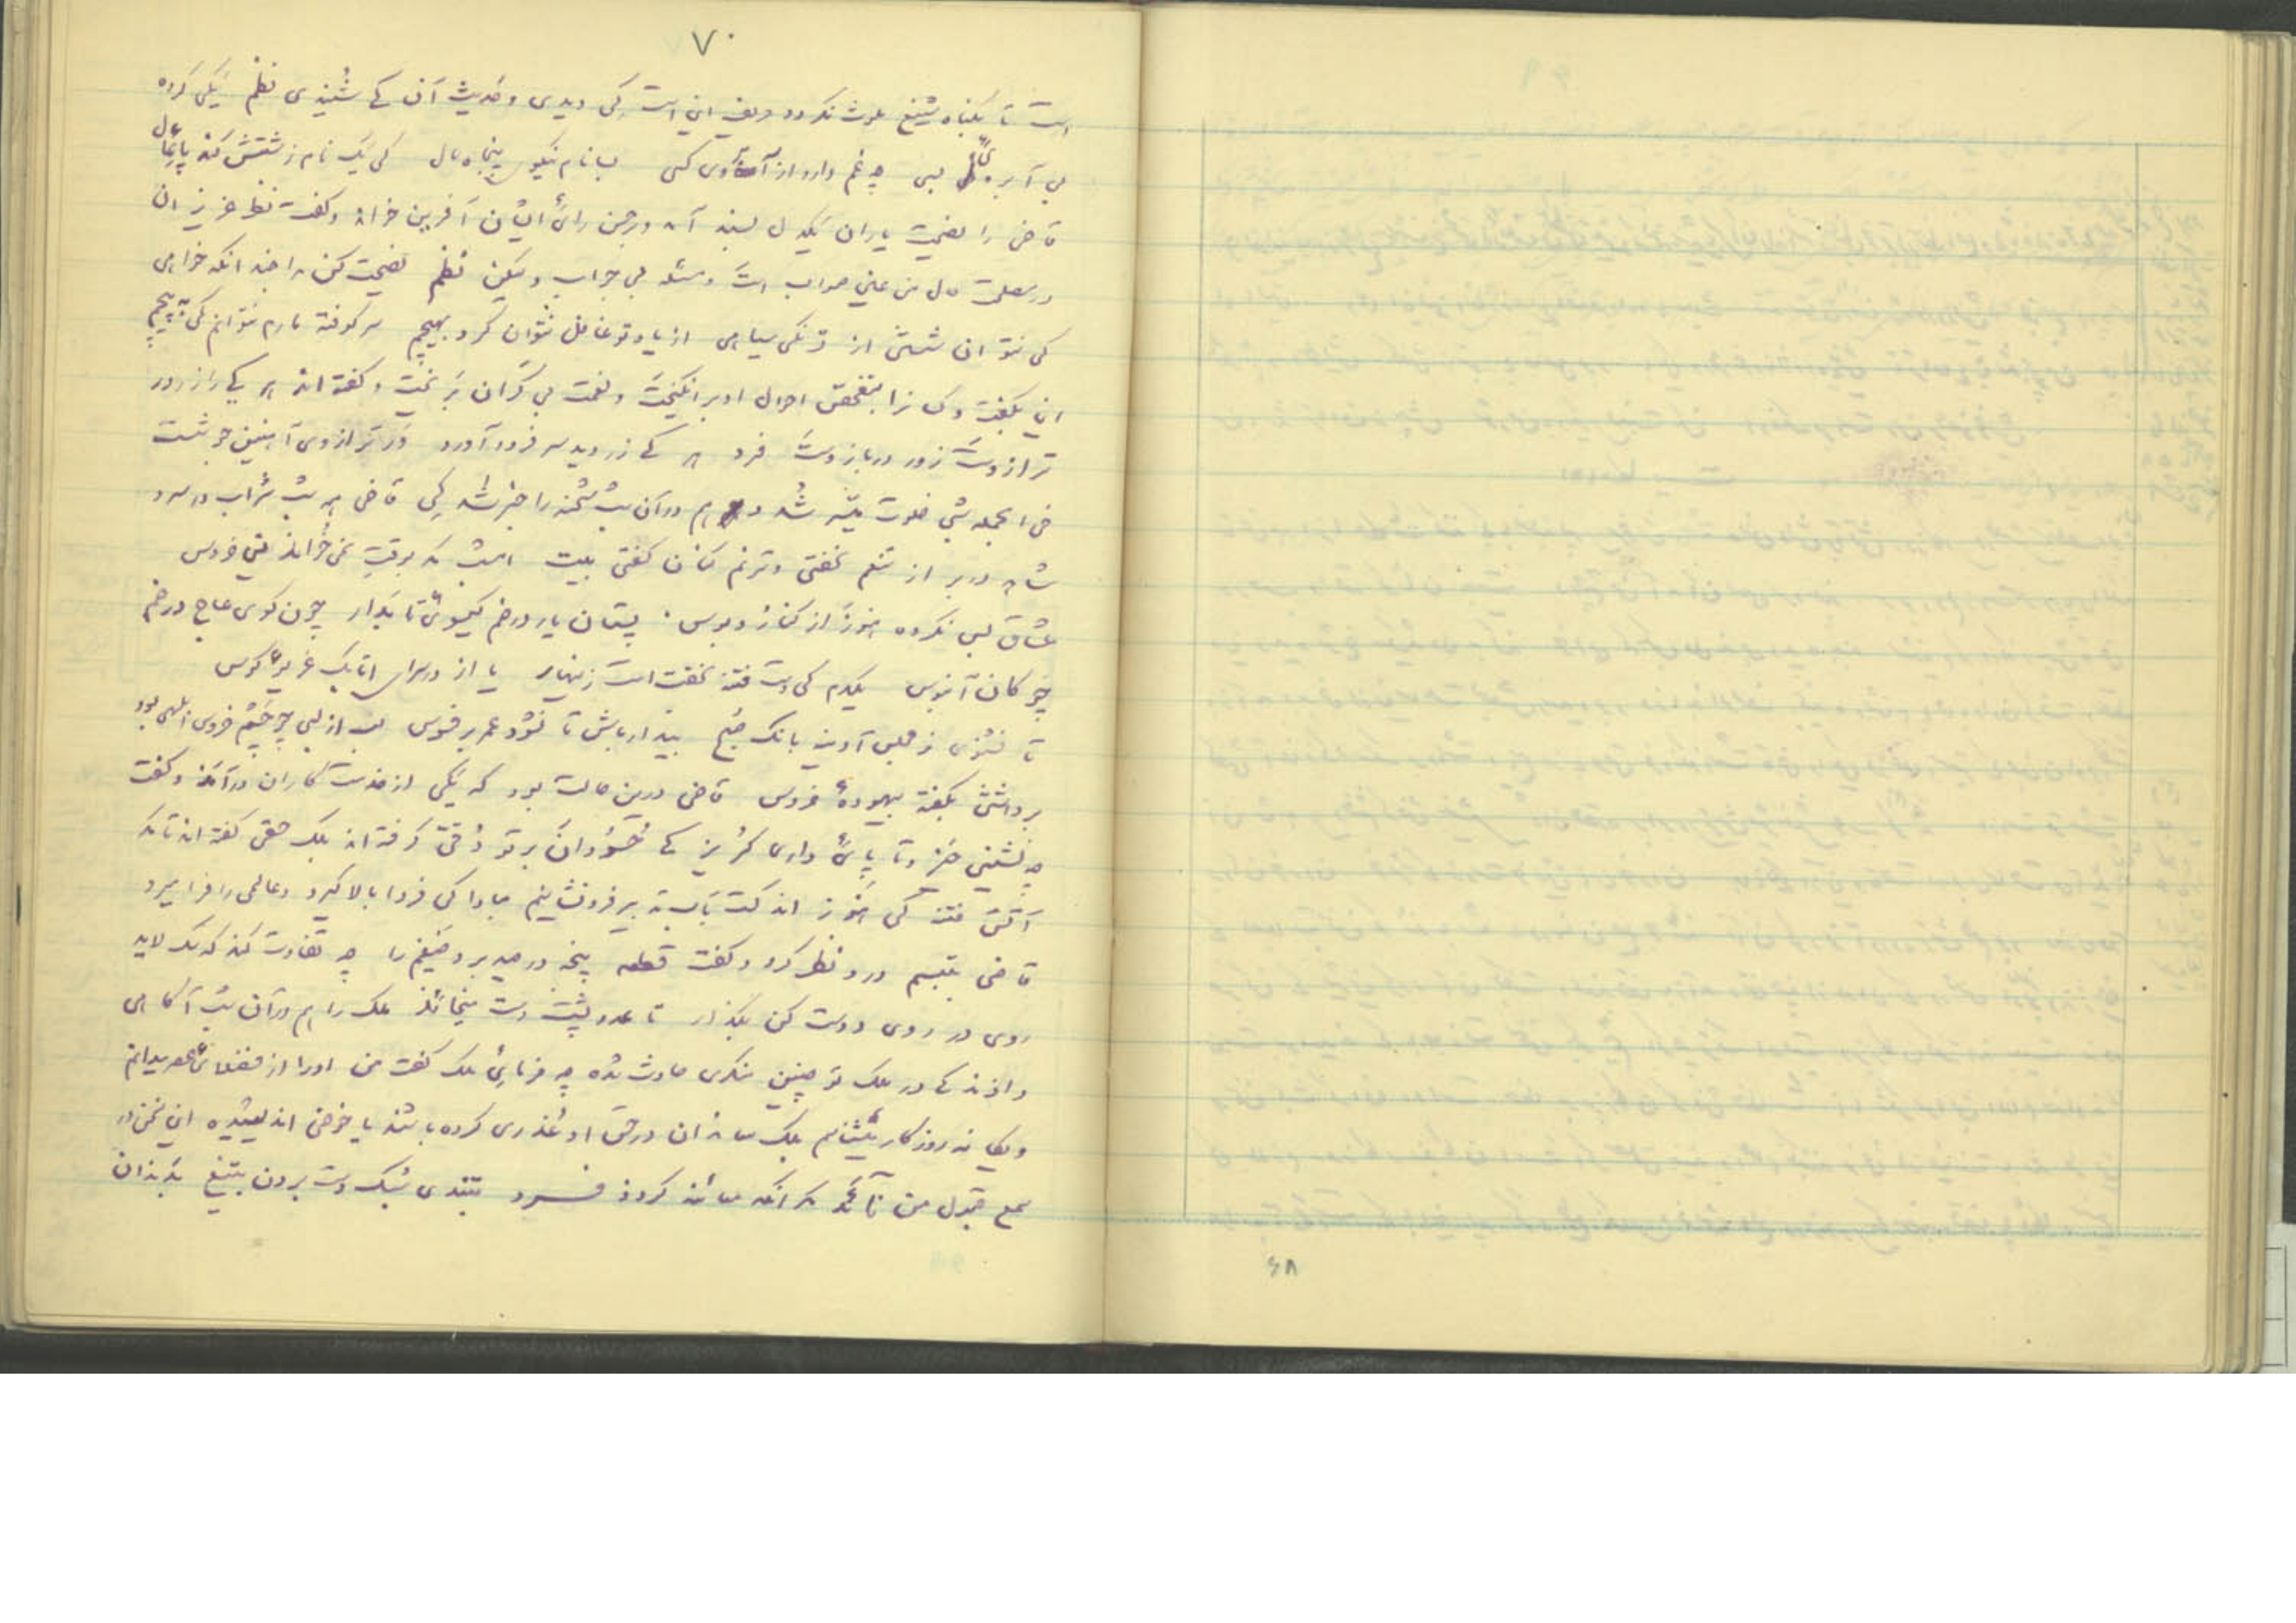 ۷۰
است تا بگناه شنیع ملوث نکردد حریف این است کی دیدی و حدیث آن کے شنیدی نظم یکی کرده
بی آبروئی بسی چه غم دارد از آبروی کسی بسا نام نیکوی پنجاه سال کی یک نام زشتش کند پایمال
قاضی را نصیحت یاران یکدل پسند آمد و بر حسن رائ ایشان آفرین خواند و کفت نظر عزیزان
در مصلحت حال من عین صواب است و مسئله بی جواب ولیکن نظم نصیحت کن مرا چندانکه خواهی
کی نتوان شستن از زنکی سیاهی از یاد تو غافل نتوان کرد بهیچم سر کوفته مارم نتوانم کی نپیچم
این بکفت و کسانرا بتفحص احوال او بر انکیخت و نعمت بی کران بریخت و کفته اند هر کے را زر در
ترازوست زور در بازوست فرد هر کے زر دید سر فرود آورد ور ترازوی آهنین دوشست
فی الجمله شبی خلوت میسر شد و هم در آن شب شحنه را خبر شد کی قاضی همه شب شراب در سر و
شاهد در بر از تنعم نخفتی و ترنم کنان کفتی بیت امشب مکر بوقت نمی خواند این خروس
عشاق بس نکرده هنوز از کنار و بوس پستان یار در خم کیسوئ تابدار چون کوی عاج در خم
چوکان آبنوس یکدم کی دست فتنه نخفت است زینهار یا از در سرای اتابک غریو کوس
تا نشنوی ز مجلس آدینه بانک صبح بیدار باش تا نرود عمر بر فسوس لب از لبی چو چشم خروس ابلهی بود
برداشتن بکفته بیهودهٔ خروس قاضی درین حالت بود که یکی از خدمت کاران درآمد و کفت
چه نشینی خیز و تا پائ داری کریز کے حسودان بر تو دقی کرفته اند بلک حقی کفته اند تا مکر
آتش فتنه کی هنوز اندکست بآب تدبیر فرو نشانیم مبادا کی فردا بالا کیرد و عالمی را فرا کیرد
قاضی بتبسم درو نظر کرد و کفت قطعه پنجه در صید برده ضیغم را چه تفاوت کند که سک لاید
روی در روی دوست کن بکذار تا عدو پشت دست میخاید ملک را هم در آن شب آکاهی
دادند کے در ملک تو چنین منکری حادث شده چه فرمائی ملک کفت من او را از فضلائ عصر میدانم
و یکانه روزکار میشناسم بلک معاندان در حق او غدری کرده باشند یا خوضی اندیشیده این سخن در
سمع قبول من نآید مکر آنکه معائنه کردد فرد بتندی سبک دست بردن بتیغ بدندان
۶۸